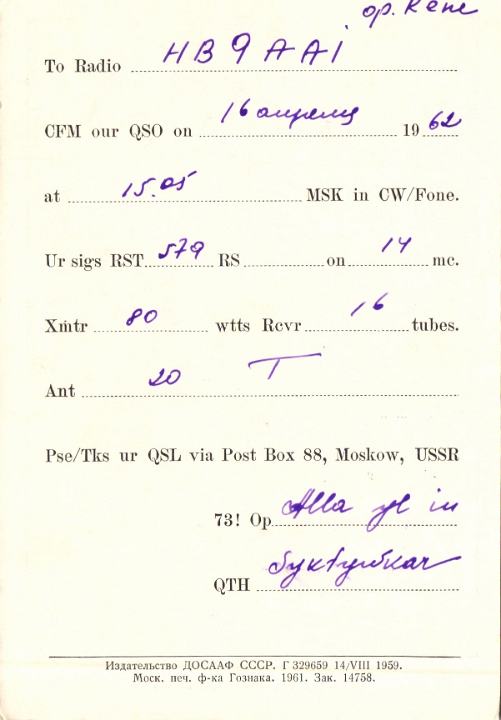 op. Rene
To Radio HB9AAI
CFM our QSO on 16 апреля 1962
at 15.05 MSK in CW/Fone.
Ur sigs RST 579 RS on 14 mc.
Xmtr 80 wtts Rcvr 16 tubes.
Ant 20 T
Pse/Tks ur QSL via Post Box 88, Moskow, USSR
73! Op Alla yl in
QTH
Издательство ДОСААФ СССР. Г 329659 14/VIII 1959.
Моск. печ. ф-ка Гознака. 1961. Зак. 14758.